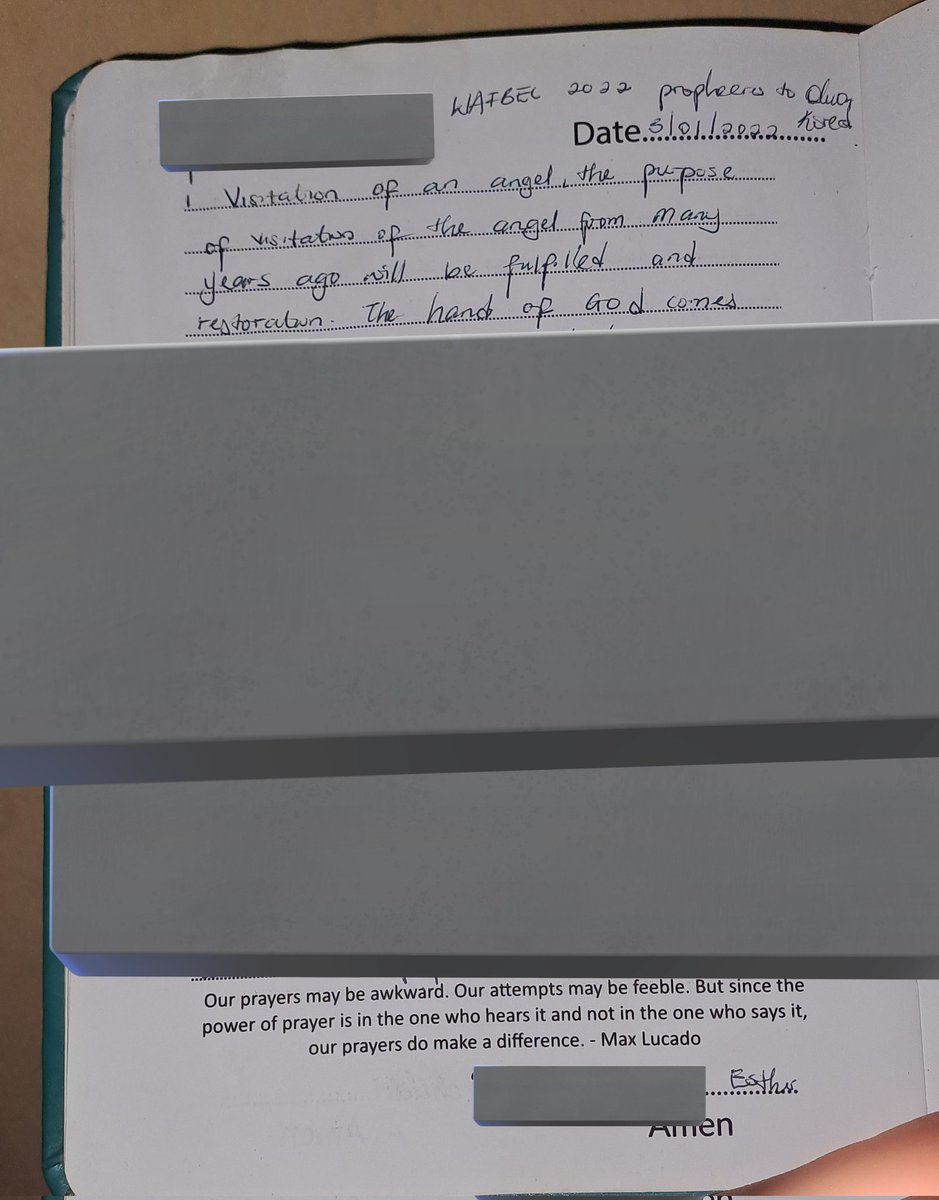 WAFBEC 2022
Date 3/01/2022
1 Visitation of an angel, the purpose
of visitation of the angel from many
years ago will be fulfiled and
restoration. The hand of God comes
Our prayers may be awkward. Our attempts may be feeble. But since the
power of prayer is in the one who hears it and not in the one who says it,
our prayers do make a difference. - Max Lucado
Esther
Amen